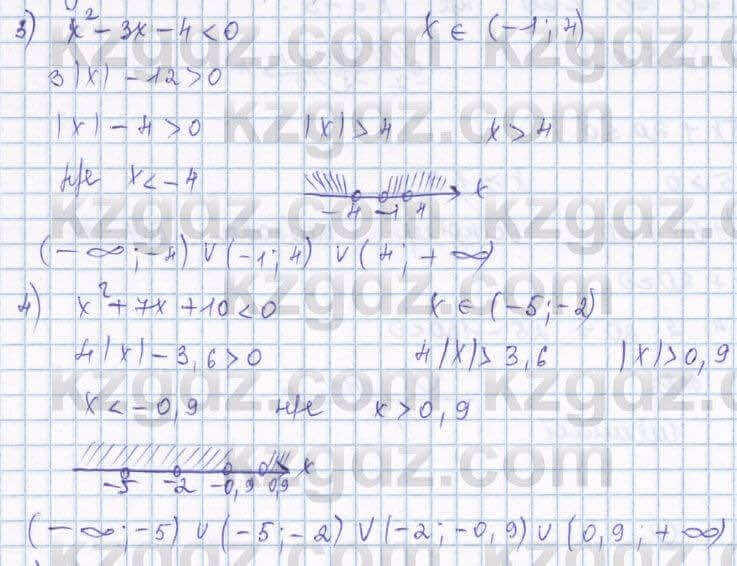 3) x² - 3x - 4 < 0 x ∈ (-1; 4)
3|x| - 12 > 0
|x| - 4 > 0 |x| > 4 x > 4
н/е x < -4
-4 -1 4 x
(-∞; -4) ∨ (-1; 4) ∨ (4; +∞)
4) x² + 7x + 10 < 0 x ∈ (-5; -2)
4|x| - 3,6 > 0 4|x| > 3,6 |x| > 0,9
x < -0,9 н/е x > 0,9
-5 -2 -0,9 0,9 x
(-∞; -5) ∨ (-5; -2) ∨ (-2; -0,9) ∨ (0,9; +∞)
kzgdz.com